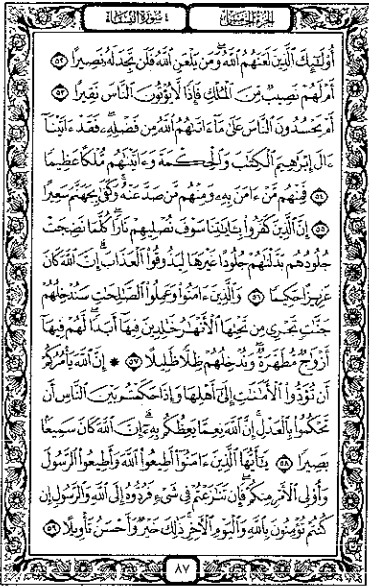 الجزء الخامس ٤ سورة النساء
أُوْلَٰٓئِكَ ٱلَّذِينَ لَعَنَهُمُ ٱللَّهُۖ وَمَن يَلْعَنِ ٱللَّهُ فَلَن تَجِدَ لَهُۥ نَصِيرًا ٥٢
أَمْ لَهُمْ نَصِيبٌ مِّنَ ٱلْمُلْكِ فَإِذًا لَّا يُؤْتُونَ ٱلنَّاسَ نَقِيرًا ٥٣
أَمْ يَحْسُدُونَ ٱلنَّاسَ عَلَىٰ مَآ ءَاتَىٰهُمُ ٱللَّهُ مِن فَضْلِهِۦۖ فَقَدْ ءَاتَيْنَآ
ءَالَ إِبْرَٰهِيمَ ٱلْكِتَٰبَ وَٱلْحِكْمَةَ وَءَاتَيْنَٰهُم مُّلْكًا عَظِيمًا
٥٤ فَمِنْهُم مَّنْ ءَامَنَ بِهِۦ وَمِنْهُم مَّن صَدَّ عَنْهُۚ وَكَفَىٰ بِجَهَنَّمَ سَعِيرًا
٥٥ إِنَّ ٱلَّذِينَ كَفَرُوا۟ بِـَٔايَٰتِنَا سَوْفَ نُصْلِيهِمْ نَارًا كُلَّمَا نَضِجَتْ
جُلُودُهُم بَدَّلْنَٰهُمْ جُلُودًا غَيْرَهَا لِيَذُوقُوا۟ ٱلْعَذَابَۗ إِنَّ ٱللَّهَ كَانَ
عَزِيزًا حَكِيمًا ٥٦ وَٱلَّذِينَ ءَامَنُوا۟ وَعَمِلُوا۟ ٱلصَّٰلِحَٰتِ سَنُدْخِلُهُمْ
جَنَّٰتٍ تَجْرِى مِن تَحْتِهَا ٱلْأَنْهَٰرُ خَٰلِدِينَ فِيهَآ أَبَدًاۖ لَّهُمْ فِيهَآ
أَزْوَٰجٌ مُّطَهَّرَةٌۖ وَنُدْخِلُهُمْ ظِلًّا ظَلِيلًا ٥٧ ۞ إِنَّ ٱللَّهَ يَأْمُرُكُمْ
أَن تُؤَدُّوا۟ ٱلْأَمَٰنَٰتِ إِلَىٰٓ أَهْلِهَا وَإِذَا حَكَمْتُم بَيْنَ ٱلنَّاسِ أَن
تَحْكُمُوا۟ بِٱلْعَدْلِۚ إِنَّ ٱللَّهَ نِعِمَّا يَعِظُكُم بِهِۦٓۗ إِنَّ ٱللَّهَ كَانَ سَمِيعًۢا
بَصِيرًا ٥٨ يَٰٓأَيُّهَا ٱلَّذِينَ ءَامَنُوٓا۟ أَطِيعُوا۟ ٱللَّهَ وَأَطِيعُوا۟ ٱلرَّسُولَ
وَأُو۟لِى ٱلْأَمْرِ مِنكُمْۖ فَإِن تَنَٰزَعْتُمْ فِى شَىْءٍ فَرُدُّوهُ إِلَى ٱللَّهِ وَٱلرَّسُولِ إِن
كُنتُمْ تُؤْمِنُونَ بِٱللَّهِ وَٱلْيَوْمِ ٱلْءَاخِرِۚ ذَٰلِكَ خَيْرٌ وَأَحْسَنُ تَأْوِيلًا ٥٩
٨٧